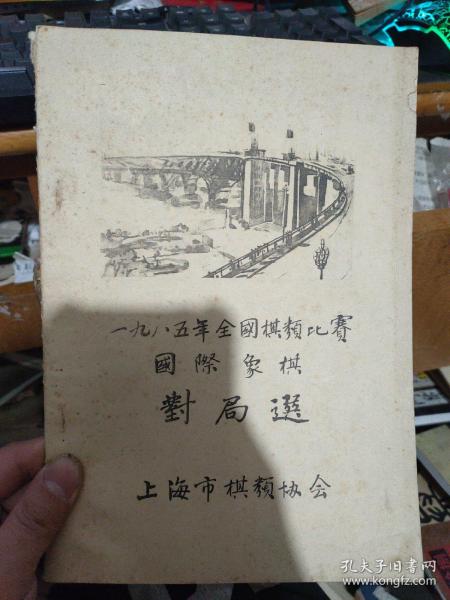 一九八五年全國棋類比賽
國際象棋
對局選
上海市棋類协会
孔夫子旧书网
www.kongfz.com